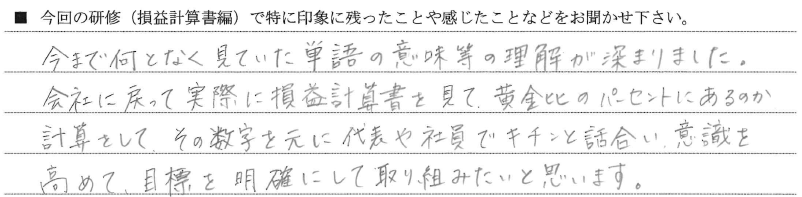 ■ 今回の研修（損益計算書編）で特に印象に残ったことや感じたことなどをお聞かせ下さい。
今まで何となく見ていた単語の意味等の理解が深まりました。
会社に戻って実際に損益計算書を見て、黄金比のパーセントにあるのか
計算をして、その数字を元に代表や社員でキチンと話合い、意識を
高めて、目標を明確にして取り組みたいと思います。